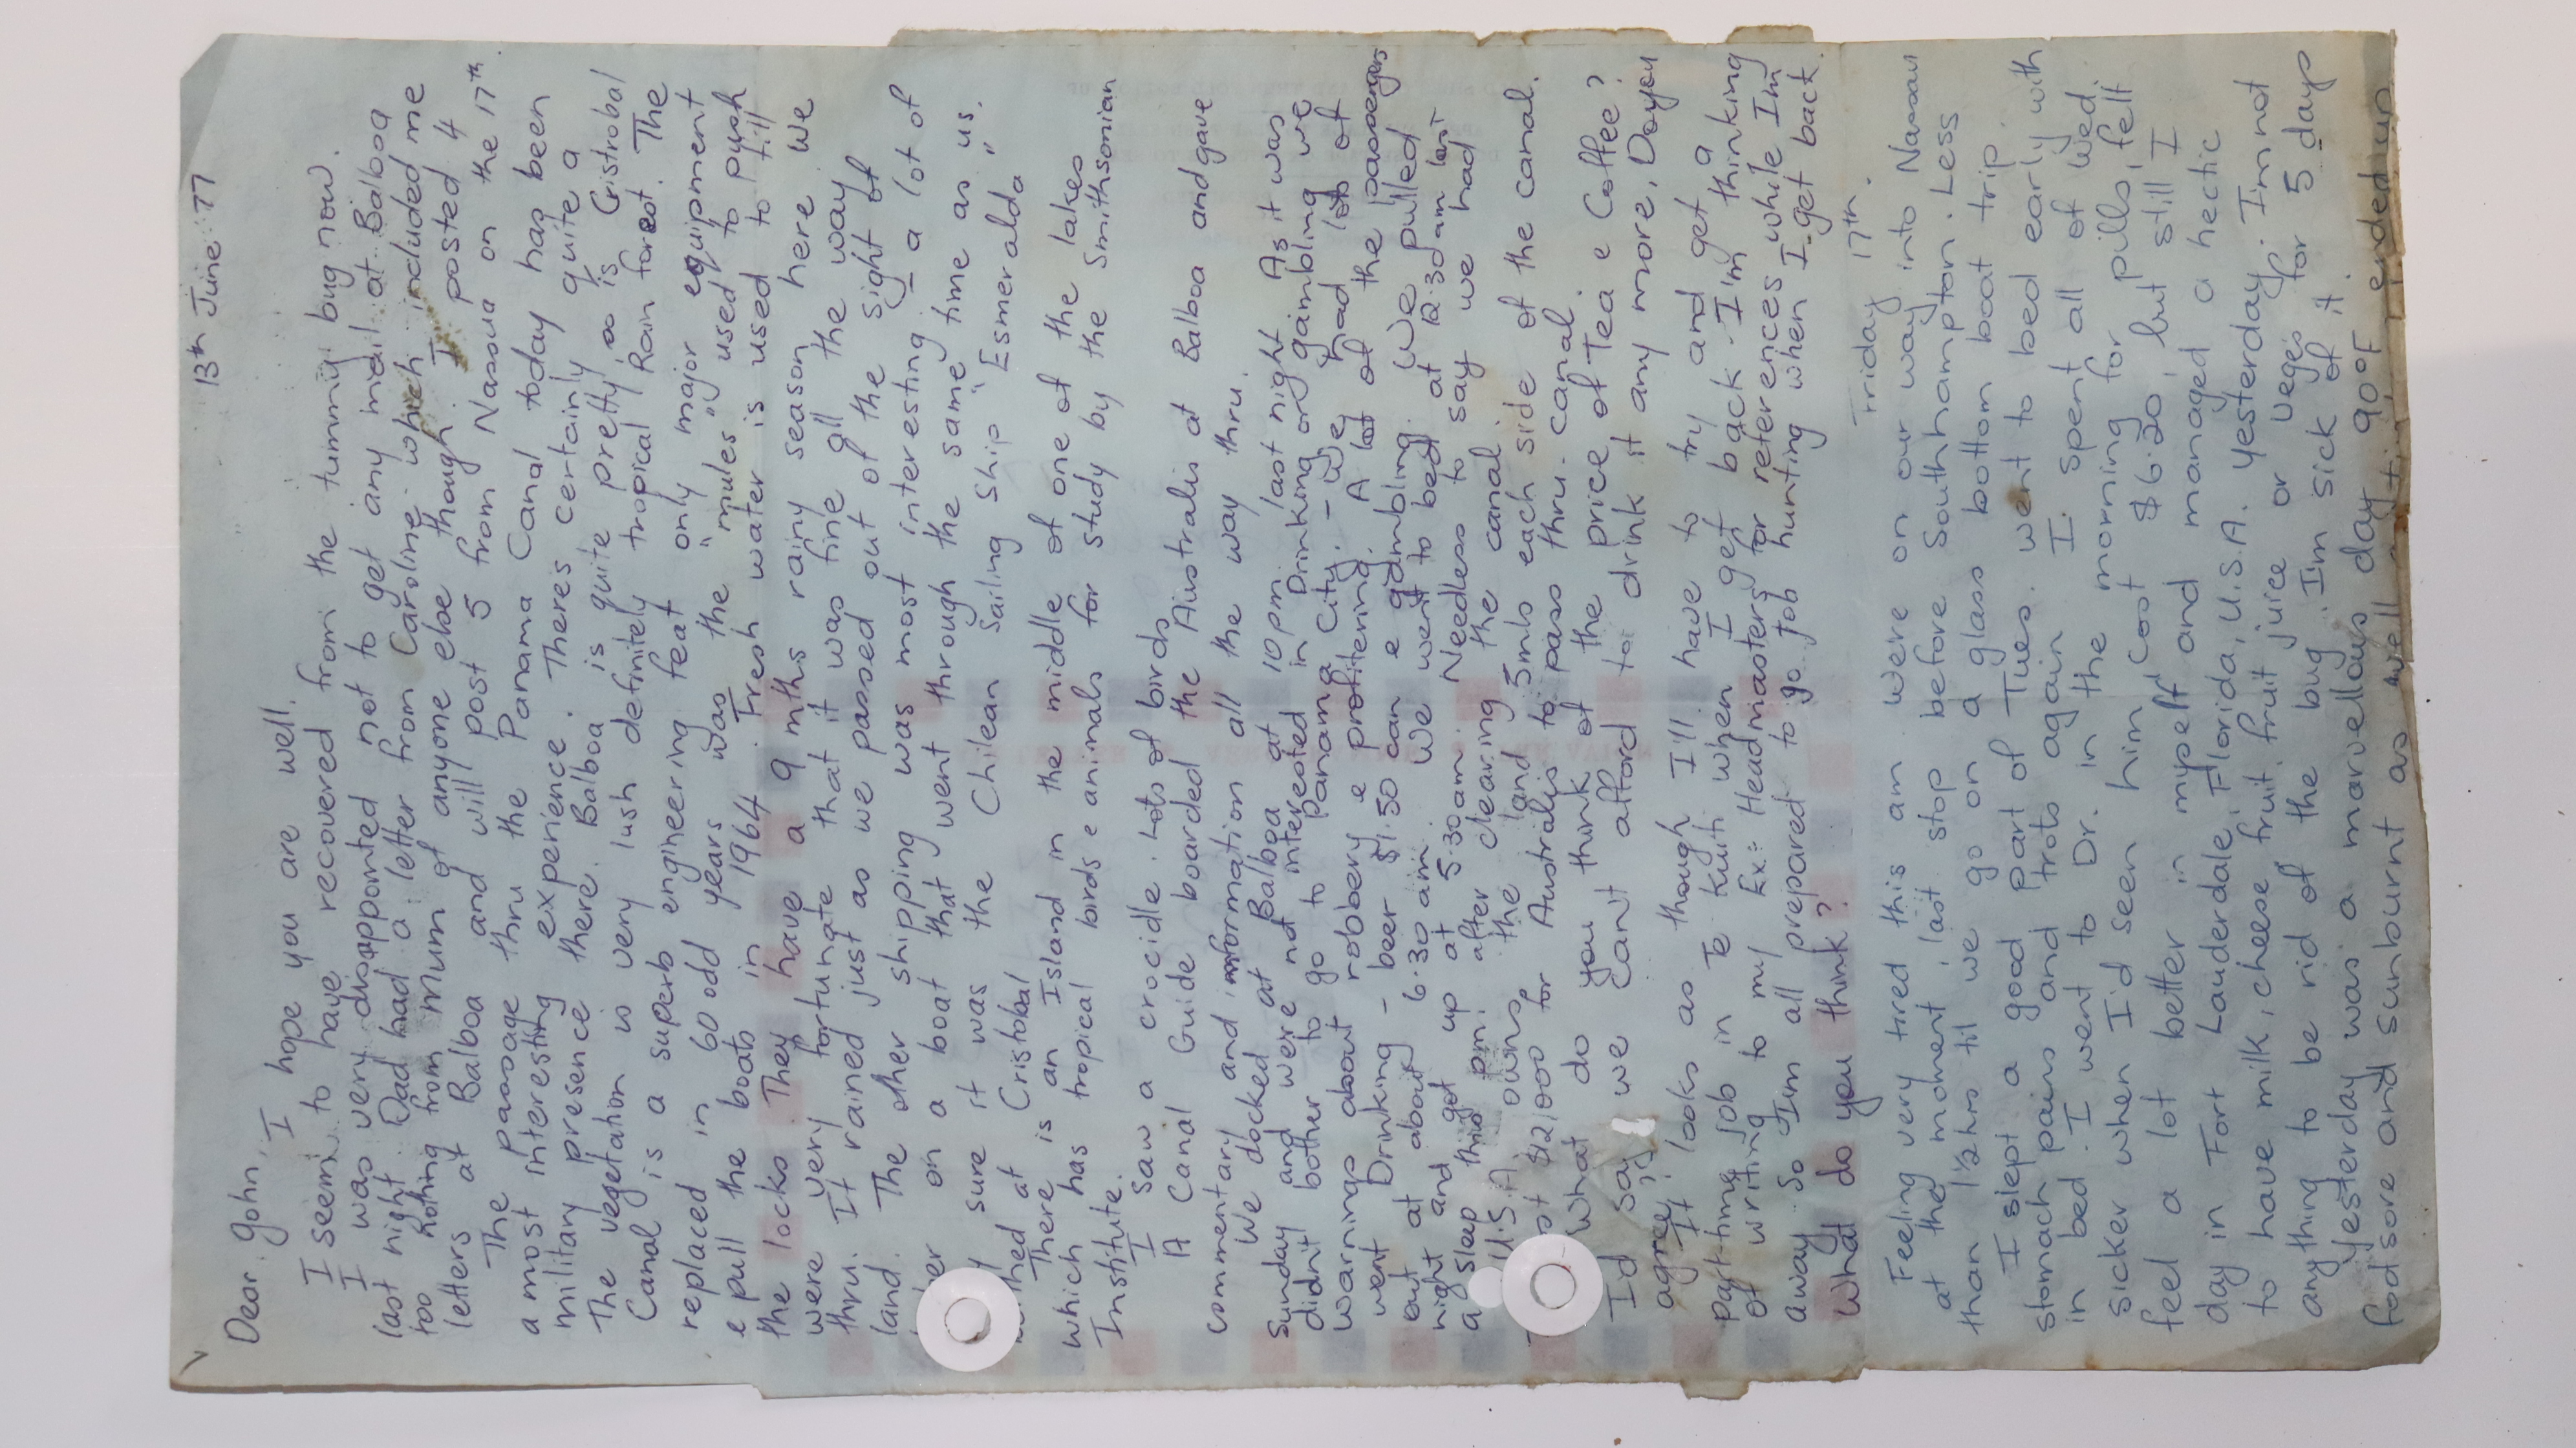 13th June '77
Dear John,
I hope you are well.
I seem to have recovered from the tummy bug now.
I was very disappointed not to get any mail at Balboa
last night. Dad had a letter from Caroline which included me
too nothing from Mum or anyone else though. I posted 4
letters at Balboa and will post 5 from Nassua on the 17th
The passage thru the Panama Canal today has been
a most interesting experience. Theres certainly quite a
military presence there. Balboa is quite pretty, so is Cristrobal
The vegetation is very lush definitely tropical Rain forest. The
Canal is a superb engineering feat only major equipment
replaced in 60 odd years was the "mules" used to push
e pull the boats in 1964. Fresh water is used to fill
the locks. They have a 9 mths rainy season here we
were very fortunate that it was fine all the way
thru. It rained just as we passed out of the sight of
land. The other shipping was most interesting - a lot of
on a boat that went through the same time as us.
sure it was the Chilean Sailing Ship "Esmeralda"
at Cristobal
There is an Island in the middle of one of the lakes
which has tropical birds e animals for study by the Smithsonian
Institute.
I saw a crocidle. Lots of birds
A Canal Guide boarded the Australis at Balboa and gave
commentary and information all the way thru.
We docked at Balboa at 10pm last night. As it was
Sunday and were not interested in Drinking or gambling we
didnt bother to go to Panama City. - We had lots of
warnings about robbery e profiteering. A lot of the passengers
went Drinking - beer $1.50 can e gambling. We pulled
out at about 6.30 am. We went to bed at 12.30am last
night and got up at 5.30am. Needless to say we had
a sleep this pm. after clearing the canal.
U.S.A owns the land 5mls each side of the canal.
$12,000 for Australis to pass thru. canal.
What do you think of the price of Tea e Coffee?
I'd say we cant afford to drink it any more, Do you
agree?
It looks as though I'll have to try and get a
part-time job in Te Kuiti when I get back. I'm thinking
of writing to my Ex: Headmasters for references while Im
away so Im all prepared to go job hunting when I get back.
What do you think?
Friday 17th.
Feeling very tired this am were on our way into Nassau
at the moment, last stop before Southhampton. Less
than 1½hrs til we go on a glass bottom boat trip
I slept a good part of Tues. went to bed early with
stomach pains and trots again I. spent all of Wed.
in bed. I went to Dr. in the morning for pills, felt
sicker when I'd seen him, cost $6.20, but still I
feel a lot better in myself and managed a hectic
day in Fort Lauderdale, Florida, U.S.A. yesterday. Im not
to have milk, cheese fruit, fruit juice or veges for 5 days
anything to be rid of the bug. I'm sick of it.
Yesterday was a marvellous day 90°F ended up
footsore and sunburnt as well